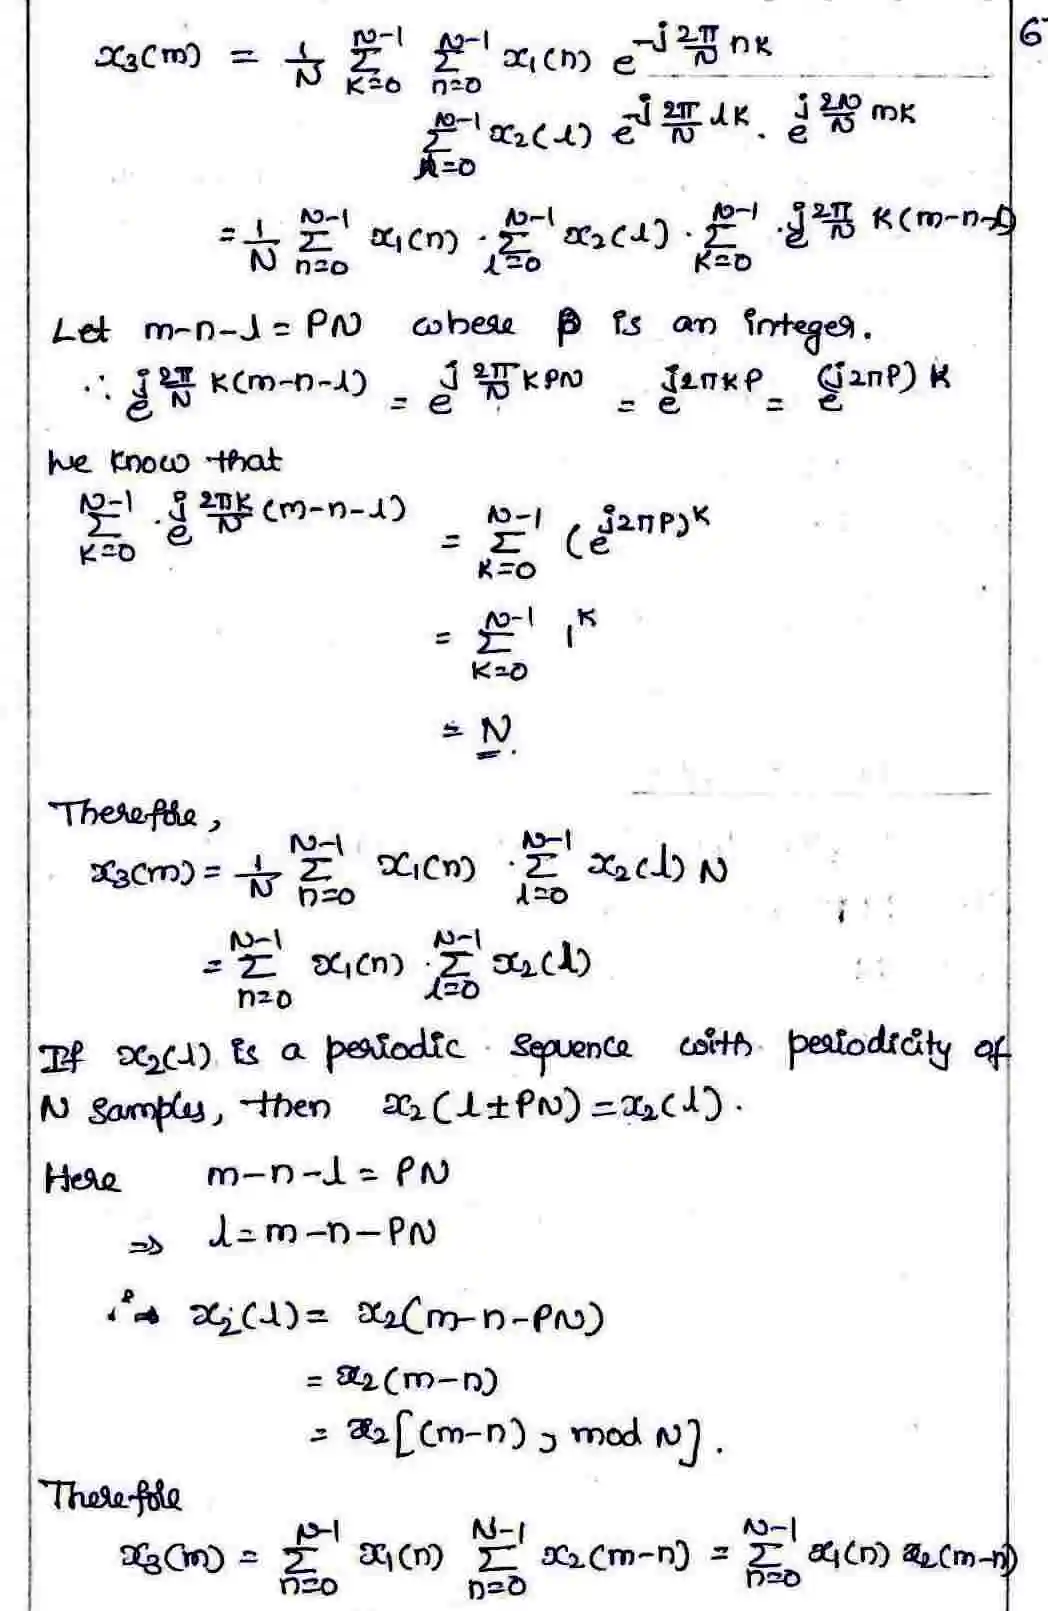 6
x₃(m) = 1/N Σ_{K=0}^{N-1} Σ_{n=0}^{N-1} x₁(n) e^{-j 2π/N nK}
Σ_{l=0}^{N-1} x₂(l) e^{-j 2π/N lK} . e^{j 2N/N mK}
= 1/N Σ_{n=0}^{N-1} x₁(n) . Σ_{l=0}^{N-1} x₂(l) . Σ_{K=0}^{N-1} . e^{j 2π/N K(m-n-l)}
Let m-n-l = PN where P is an integer.
∴ e^{j 2π/N K(m-n-l)} = e^{j 2π/N KPN} = e^{j2πKP} = e^{(j2πP)K}
We know that
Σ_{K=0}^{N-1} . e^{j 2πK/N (m-n-l)} = Σ_{K=0}^{N-1} (e^{j2πP})^K
= Σ_{K=0}^{N-1} 1^K
= N.
Therefore,
x₃(m) = 1/N Σ_{n=0}^{N-1} x₁(n) . Σ_{l=0}^{N-1} x₂(l) N
= Σ_{n=0}^{N-1} x₁(n) . Σ_{l=0}^{N-1} x₂(l)
If x₂(l) is a periodic sequence with periodicity of
N samples, then x₂(l ± PN) = x₂(l).
Here m-n-l = PN
⇒ l = m-n-PN
∴ x₂(l) = x₂(m-n-PN)
= x₂(m-n)
= x₂[(m-n), mod N].
Therefore
x₃(m) = Σ_{n=0}^{N-1} x₁(n) Σ_{n=0}^{N-1} x₂(m-n) = Σ_{n=0}^{N-1} x₁(n) x₂(m-n)